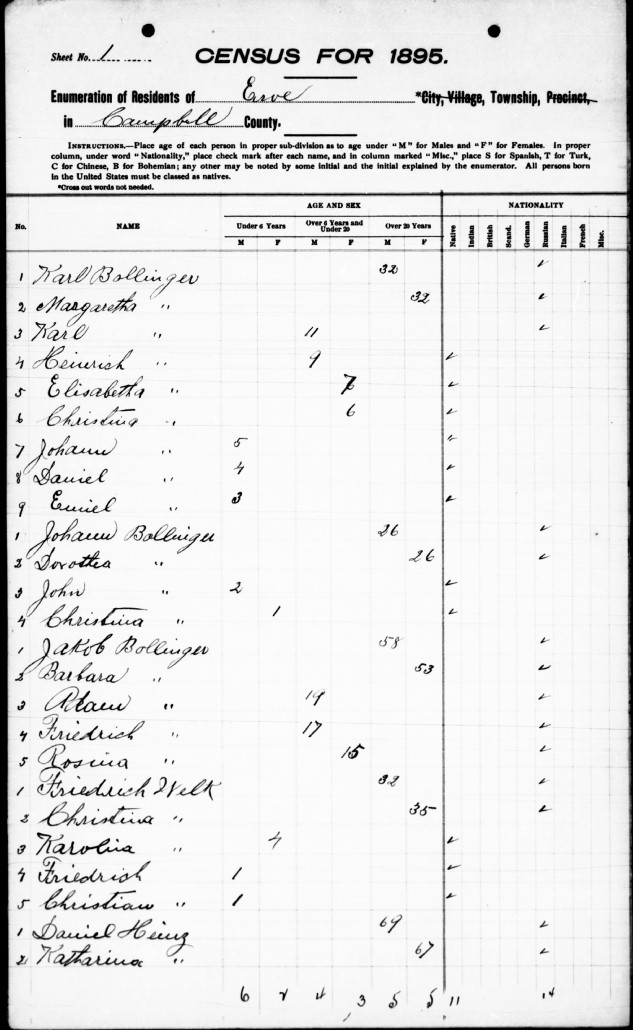 Sheet No. 1
CENSUS FOR 1895.
Enumeration of Residents of *City, Village, Township, Precinct,
in Campbell County.
INSTRUCTIONS.—Place age of each person in proper sub-division as to age under "M" for Males and "F" for Females. In proper
column, under word "Nationality," place check mark after each name, and in column marked "Misc.," place S for Spanish, T for Turk,
C for Chinese, B for Bohemian; any other may be noted by some initial and the initial explained by the enumerator. All persons born
in the United States must be classed as natives.
*Cross out words not needed.
AGE AND SEX NATIONALITY
No. NAME Under 6 Years Over 6 Years and Under 20 Over 20 Years Native Indian British Scand. German Russian Italian French Misc.
M F M F M F
1 Karl Bollinger 32 ✓
2 Margaretha " 32 ✓
3 Karl " 11 ✓
4 Heinrich " 9 ✓
5 Elisabetha " 7 ✓
6 Christina " 6 ✓
7 Johann " 5 ✓
8 Daniel " 4 ✓
9 Emiel " 3 ✓
1 Johann Bollinger 26 ✓
2 Dorothea " 26 ✓
3 John " 2 ✓
4 Christina " 1 ✓
1 Jakob Bollinger 58 ✓
2 Barbara " 53 ✓
3 Adam " 19 ✓
4 Friedrich " 17 ✓
5 Rosina " 15 ✓
1 Friedrich Welk 32 ✓
2 Christina " 35 ✓
3 Karolina " 4 ✓
4 Friedrich 1 ✓
5 Christian " 1 ✓
1 Daniel Heinz 69 ✓
2 Katharina " 67 ✓
6 2 4 3 5 5 11 14